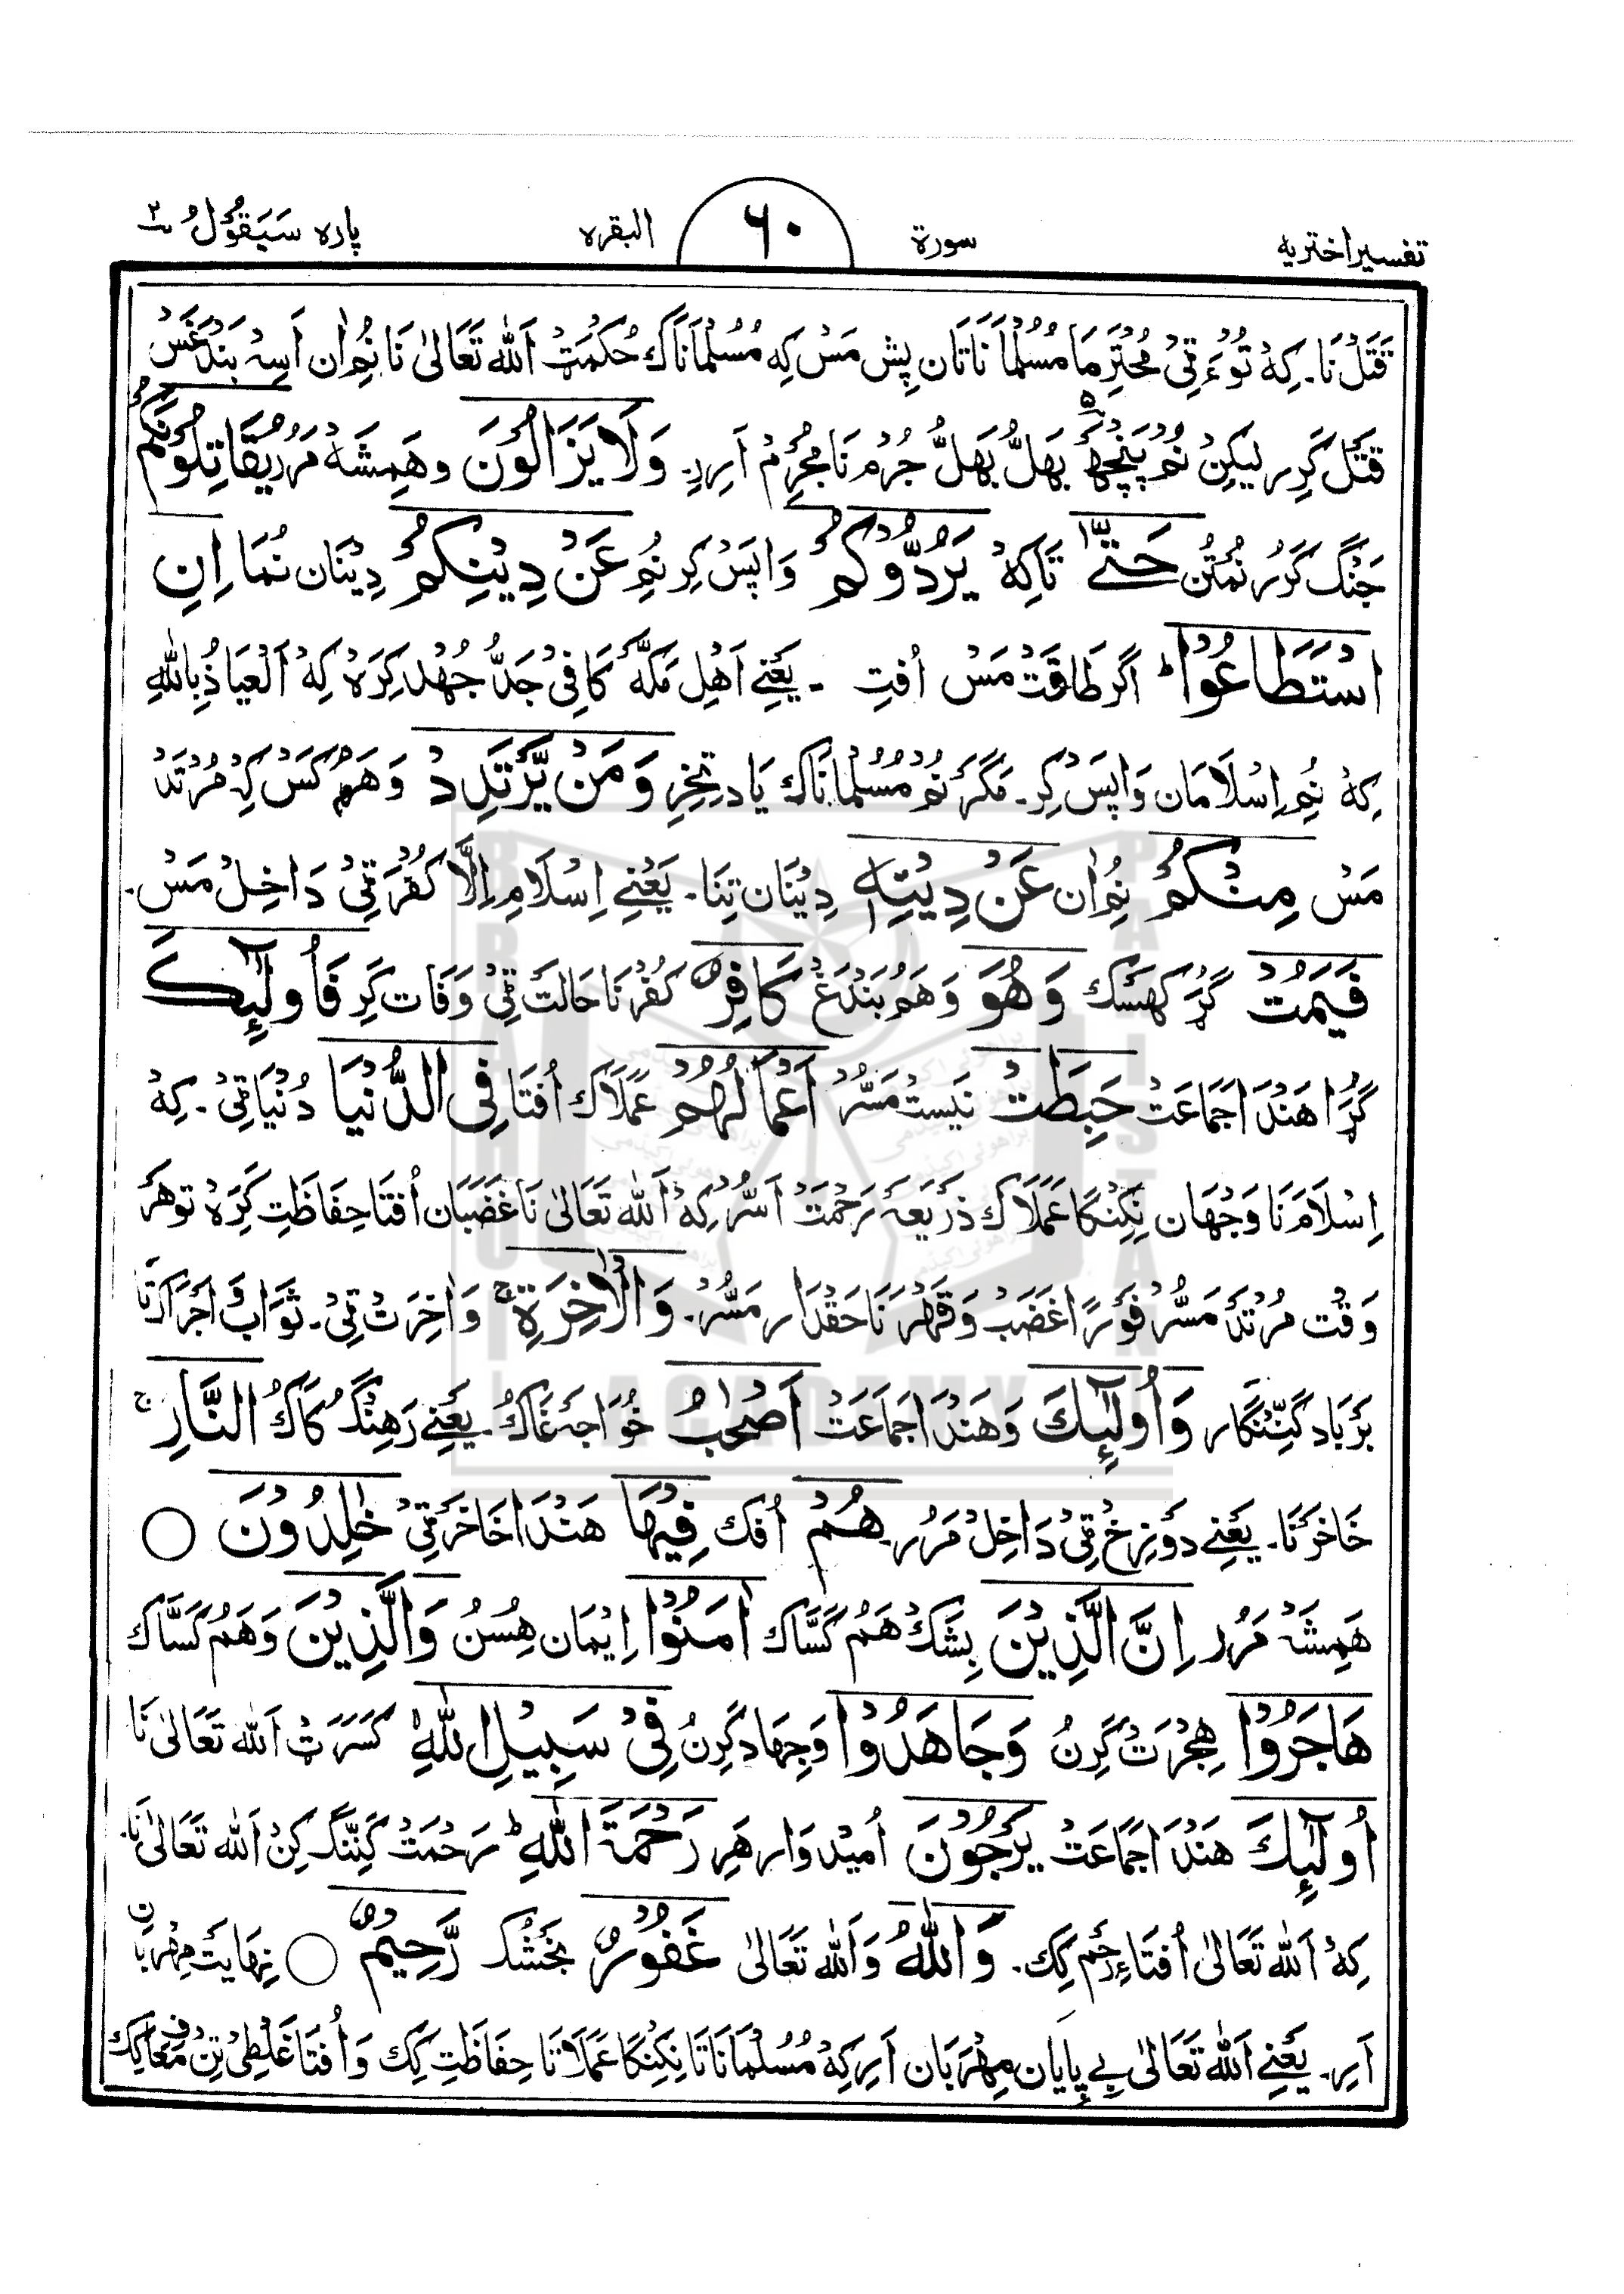 تفسیر اختریه سورة ٦٠ البقره پاره سَیَقُوْلُ ٢
قَتَلْ نَا۔ کِہْ تُوْءَ ٹِیْ مُحْتَرِمَا مُسُلْمَانَاتَان پِش مَسْ کِہ مُسُلْمَانَاک حُکْمَتْ اَللہ تَعَالیٰ نَا نُم اِن اَسِہْ بَنْدَغَسْ
قَتَل کَرِر لیکِنْ نُمْ پَنْچَھ بَھلُّ بَھلُّ جُرْم نَا مُجْرِمْ اَرِرِ۔ وَلَا یَزَالُوْنَ وھَمِشَہْ مَرَرْ یُقَاتِلُوْنَکُمْ
جَنْگ کَرَرْ نُمْتُنْ حَتّٰی تَاکِہْ یَرُدُّوْکُمْ وَاپَسْ کِرِ نُمِ عَنْ دِیْنِکُمْ دِیْنَان نُمَا اِنِ
اسْتَطَاعُوْا ؕ اَگَر طَاقَتْ مَسْ اُفتِ ۔ یَعْنِے اَھْل مَکَّہْ کَافِیْ جَدُّ جُھْد کِرَہْ کِہْ اَلْعِیَاذُ بِاللہِ
کِہْ نُمِ اِسْلَامَان وَاپَسْ کِر۔ مَگَرْ نُمْ مُسُلْمَانَاک یَاد تِخِرِ وَمَنْ یَّرْتَدِدْ وَھَمْ کَسْ کِہْ مُرْتَدْ
مَسْ مِنْکُمْ نُمْ اِن عَنْ دِیْنِہٖ دِیْنَان تِنَا۔ یَعْنِے اِسْلَامِ اِلَّا کُفْرَ ٹِیْ دَاخِلْ مَسْ۔
فَیَمُتْ گُڑَ کَھسَک وَھُوَ وَھَمْ بَنْدَغْ کَافِرٌ کُفْرْ نَا حَالَتْ ٹِیْ وَفَات کَرِ فَاُولٰٓئِکَ
گُڑَا ھَنْدَا جَمَاعَتْ حَبِطَتْ نَیَسْت مَسُّرْ اَعْمَالُھُمْ عَمَلَاک اُفتَا فِی الدُّنْیَا دُنْیَا ٹِیْ۔ کِہْ
اِسْلَامَ نَا وَجْھَان نِکِنْگَا عَمَلَاک ذَرِیْعَہ رَحْمَتْ اَسُّرْ کِہْ اَللہ تَعَالیٰ نَا غَضَبَان اُفتَا حِفَاظَتِ کَرَہْ توھَر
وَقْت مُرْتَدْ مَسُّرْ فَوْرًا غَضَبْ وَقَھْرْ نَا حَقْدَار مَسُّرْ۔ وَالْاٰخِرَۃِ ۚ وَاٰخِرَتْ ٹِیْ۔ ثَوَاب وَاَجْرَاتَا
بَرْبَاد کَنِّنْگار وَاُولٰٓئِکَ وَھَنْدَا جَمَاعَتْ اَصْحٰبُ خُوَاجَہ غَاکْ۔ یَعْنِے رَھِنْگ کَاکْ النَّارِ ۚ
خَاخَرْنَا۔ یَعْنِے دوزخ ٹِیْ دَاخِلْ مَرَرْ۔ ھُمْ اُفک فِیْھَا ھَنْدَا خَاخَرَ ٹِیْ خٰلِدُوْنَ ◯
ھَمِشَہْ مَرَرْ اِنَّ الَّذِیْنَ بِشَکْ ھَمْ کَسَّاک اٰمَنُوْا اِیْمَان ھِسُنْ وَالَّذِیْنَ وَھَمْ کَسَّاک
ھَاجَرُوْا ھِجْرَتْ کَرِنُ وَجَاھَدُوْا وَجِھَاد کَرِنُ فِیْ سَبِیْلِ اللہِ کَسَرَ ٹِ اَللہ تَعَالیٰ نَا
اُولٰٓئِکَ ھَنْدَا جَمَاعَتْ یَرْجُوْنَ اُمِیْدوَار ھَرِ رَحْمَۃَ اللہِ ؕ رَحْمَتْ کَنِنَّگ کِنْ اَللہ تَعَالیٰ نَا۔
کِہْ اَللہ تَعَالیٰ اُفتَاءِ رَحَم کِک۔ وَاللہُ وَاَللہ تَعَالیٰ غَفُوْرٌ بَخْشُک رَّحِیْمٌ ◯ نِھَایَتْ مِھْرَبَان
اَرِر۔ یَعْنِے اَللہ تَعَالیٰ بِے پَایَان مِھْرَبَان اَرِر کِہْ مُسُلْمَانَاتَا نِکِنْگا عَمَلَاتَا حِفَاظَتِ کِک وَاُفتَا غَلْطِیْ تِنْ مُعَاف کِک